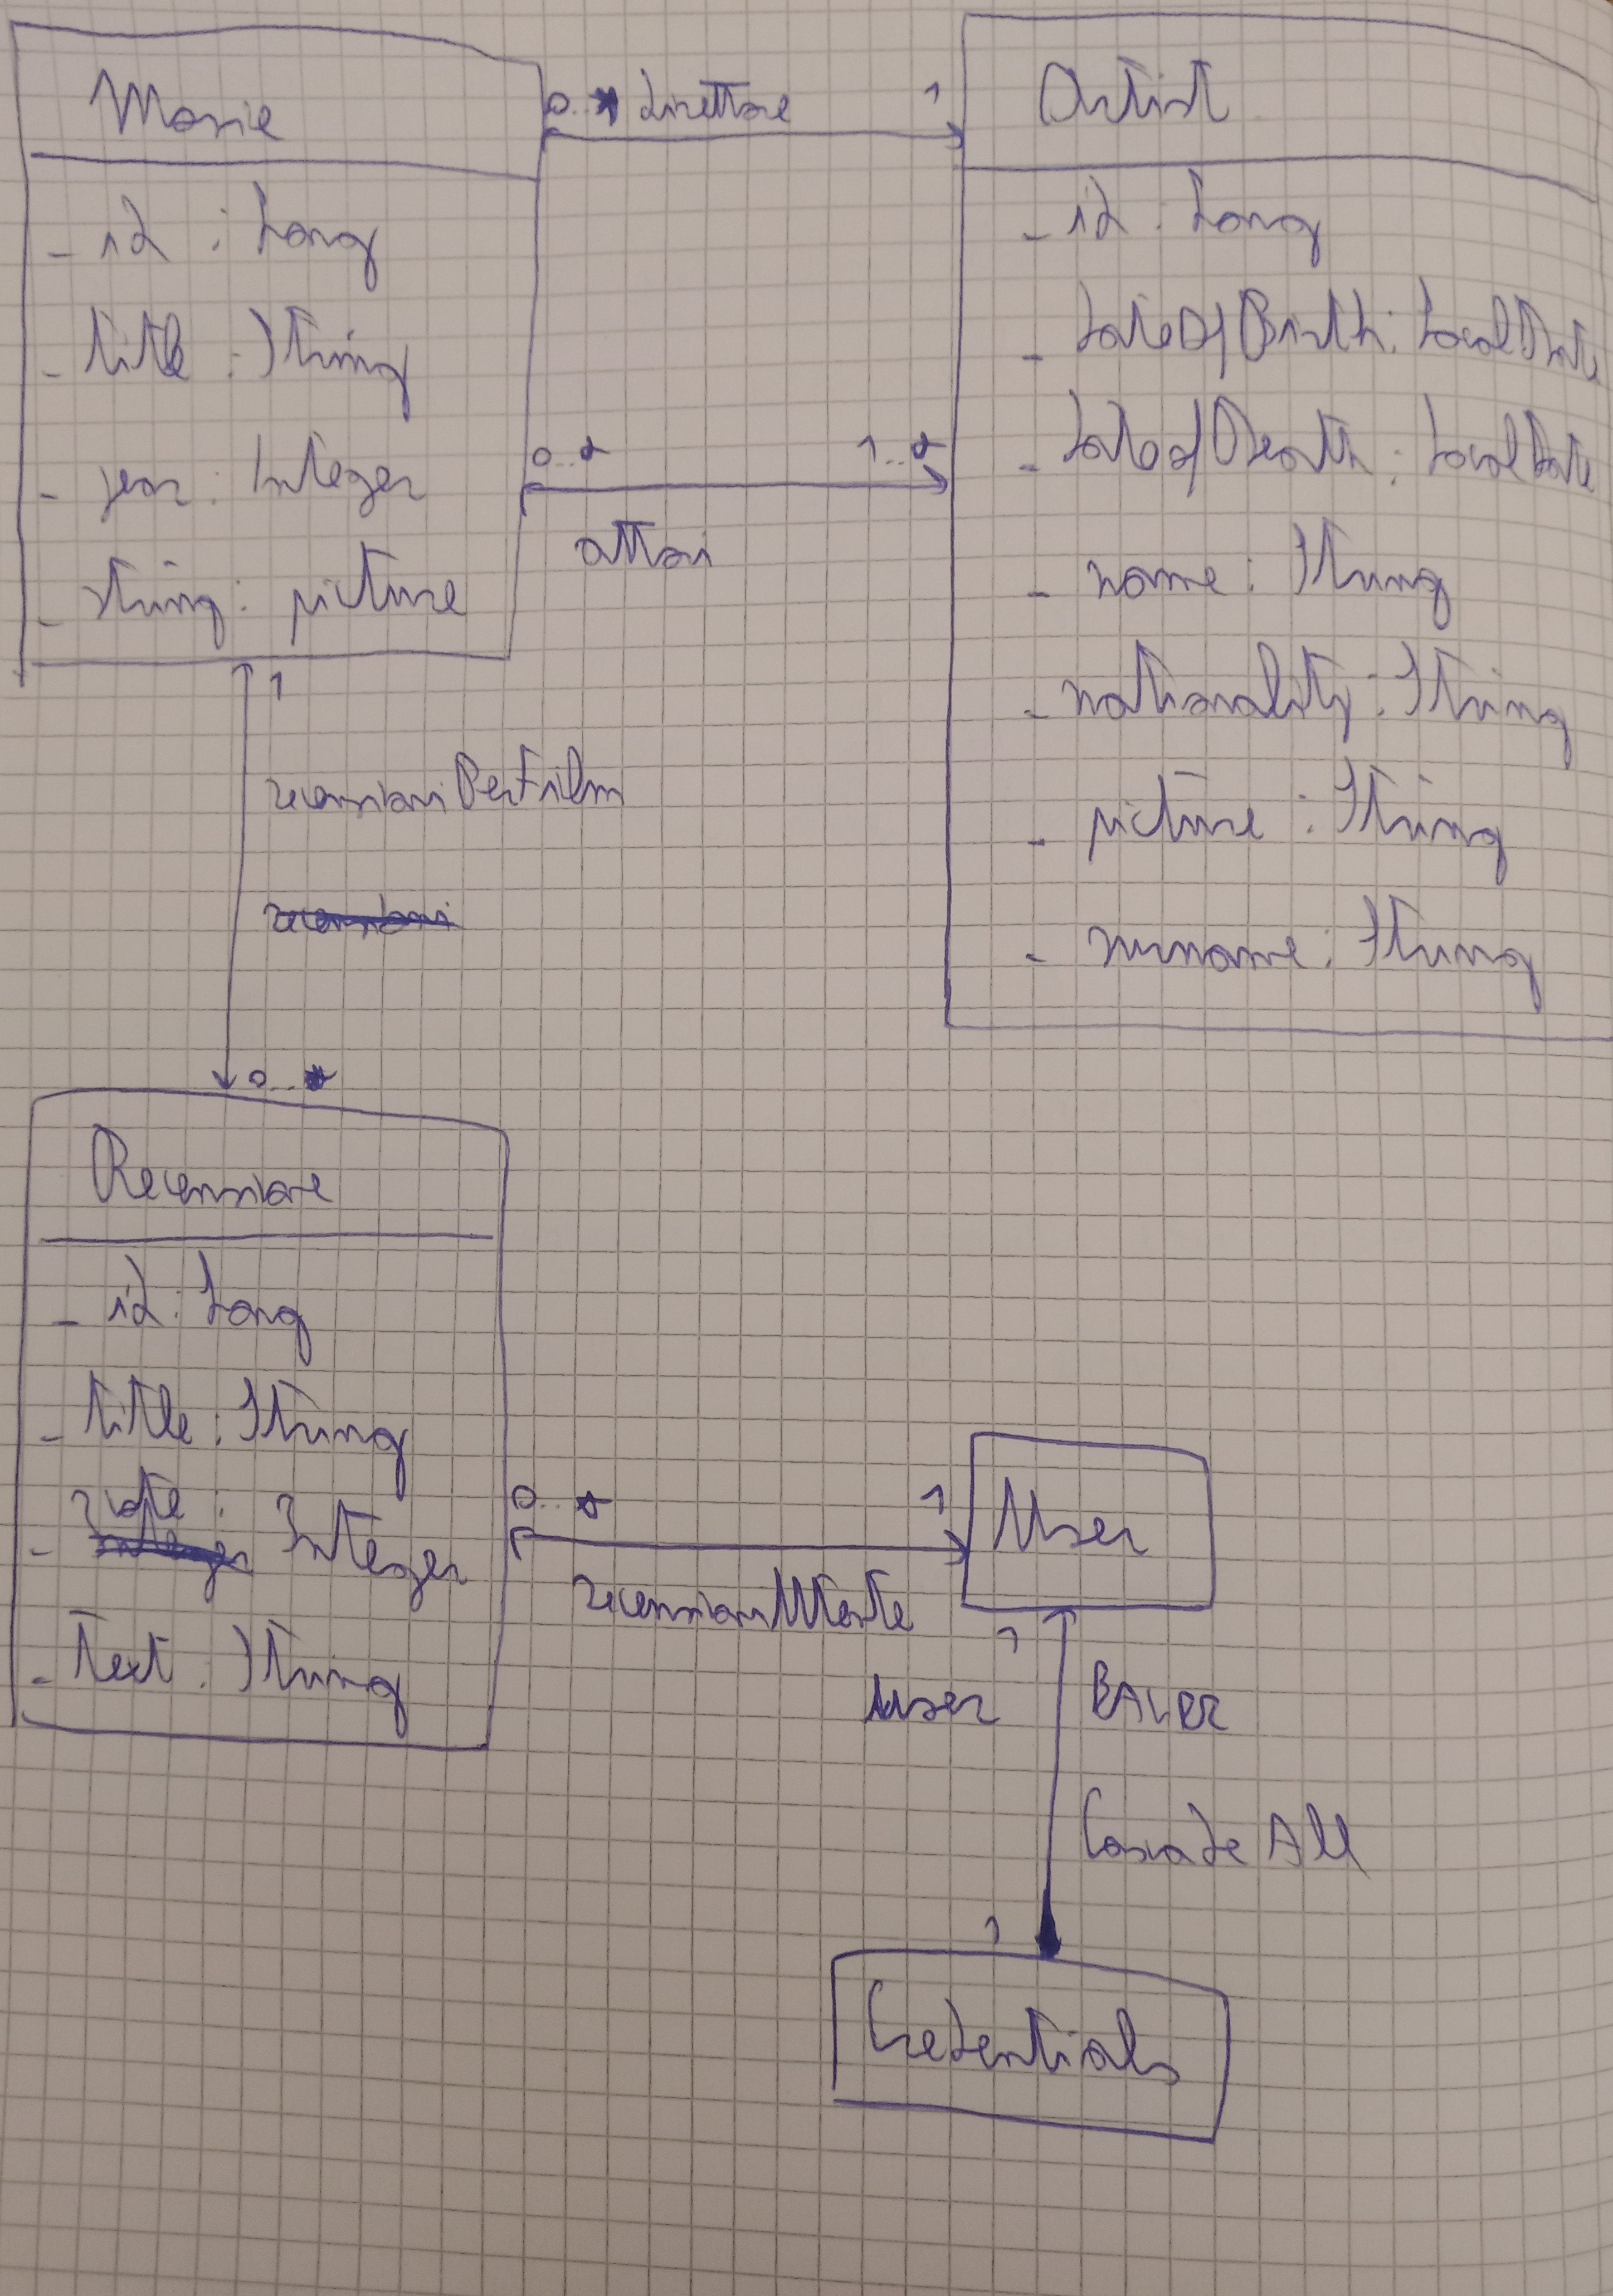 Movie
- id : Long
- title : String
- year : Integer
- string : picture
0..* direttore 1
0..* 1..*
attori
Artist
- id : Long
- dateOfBirth : LocalDate
- dateOfDeath : LocalDate
- name : String
- nationality : String
- picture : String
- surname : String
1
recensioniPerFilm
recensioni
0..*
Recensione
- id : Long
- title : String
- vote : Integer
- text : String
0..* 1
recensioniUtente
User
1
user
Cascade All
1
Credentials